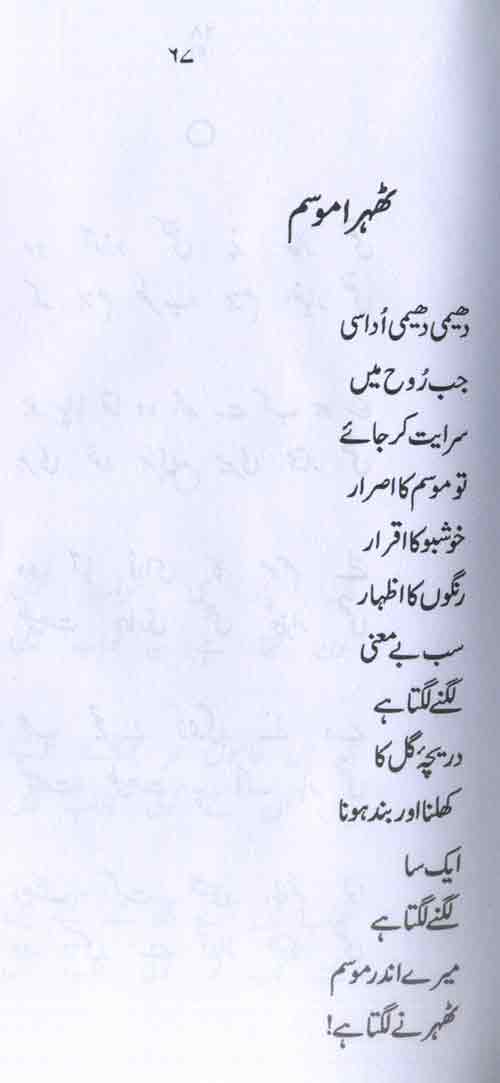 ۶۷
ٹھہرا موسم
دھیمی دھیمی اُداسی
جب رُوح میں
سرایت کر جائے
تو موسم کا اصرار
خوشبو کا اقرار
رنگوں کا اظہار
سب بے معنی
لگنے لگتا ہے
دریچۂ گل کا
کھلنا اور بند ہونا
ایک سا
لگنے لگتا ہے
میرے اندر موسم
ٹھہرنے لگتا ہے!